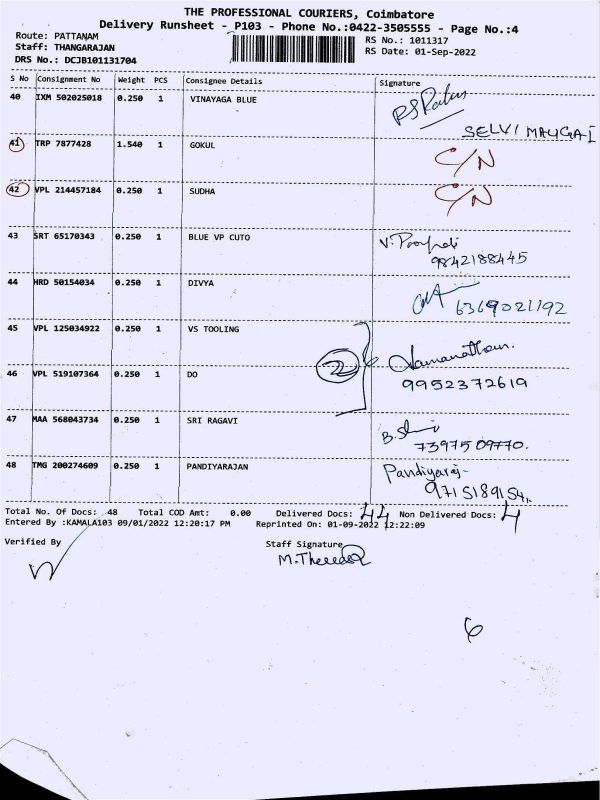 THE PROFESSIONAL COURIERS, Coimbatore
Delivery Runsheet - P103 - Phone No.:0422-3505555 - Page No.:4
Route: PATTANAM
RS No.: 1011317
Staff: THANGARAJAN
RS Date: 01-Sep-2022
DRS No.: DCJB101131704
S No Consignment No Weight PCS Consignee Details Signature
40 IXM 502025018 0.250 1 VINAYAGA BLUE
SELVI MAUGAI
41 TRP 7877428 1.540 1 GOKUL C/N
42 VPL 214457184 0.250 1 SUDHA C/N
43 SRT 65170343 0.250 1 BLUE VP CUTO
9842188445
44 HRD 50154034 0.250 1 DIVYA
6369021192
45 VPL 125034922 0.250 1 VS TOOLING
22
46 VPL 519107364 0.250 1 DO 9952372619
47 MAA 568043734 0.250 1 SRI RAGAVI
7397509770.
48 TMG 200274609 0.250 1 PANDIYARAJAN Pandiyaraj-
9715189154,
Total No. Of Docs: 48 Total COD Amt: 0.00 Delivered Docs: 44 Non Delivered Docs: 4
Entered By :KAMALA103 09/01/2022 12:20:17 PM Reprinted On: 01-09-2022 12:22:09
Verified By Staff Signature
6